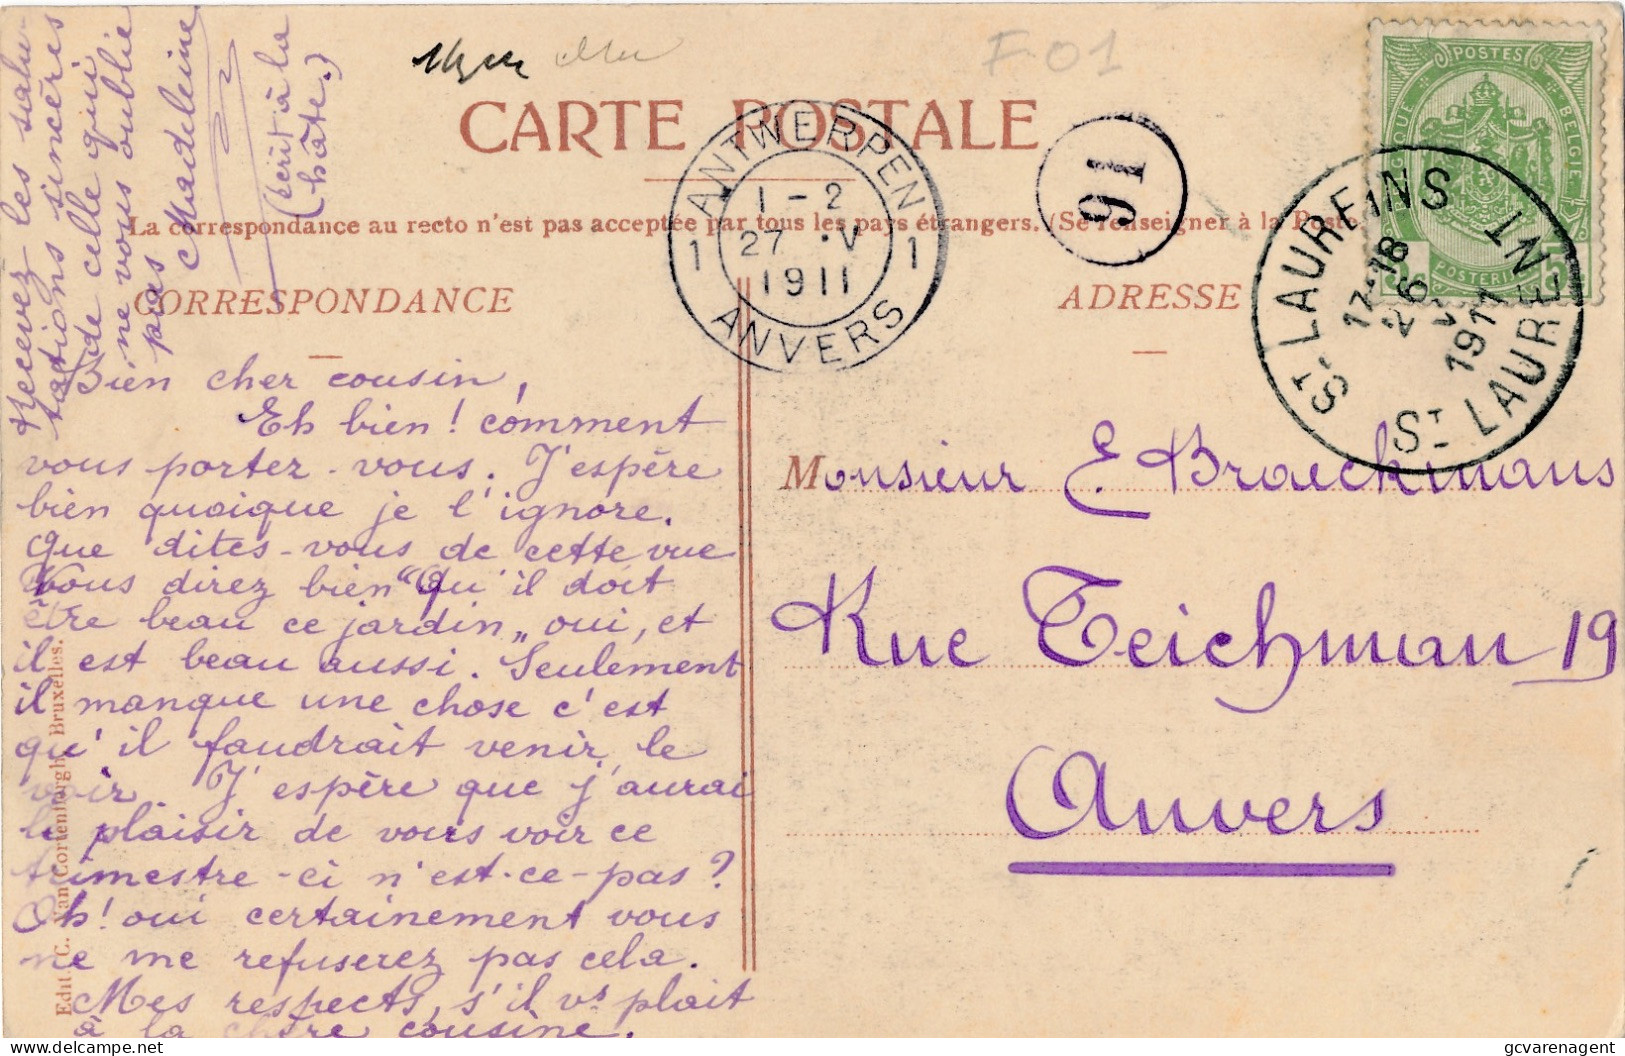 F 01
CARTE POSTALE
La correspondance au recto n'est pas acceptée par tous les pays étrangers. (Se renseigner à la Poste
CORRESPONDANCE
ADRESSE
ANTWERPEN
1-2
27 V
1911
1 1
ANVERS
91
POSTES
BELGIQUE
BELGIE
POSTERIJEN
5
ST LAUREINS
17-18
26 V
1911
ST LAURENT
Bien cher cousin,
Eh bien! comment
vous portez-vous. J'espère
bien quoique je l'ignore.
Que dites-vous de cette vue
Vous direz bien "Qu'il doit
être beau ce jardin„ oui, et
il est beau aussi. Seulement
il manque une chose c'est
qu'il faudrait venir le
voir. J'espère que j'aurai
le plaisir de vous voir ce
trimestre-ci n'est-ce-pas?
Oh! oui certainement vous
ne me refuserez pas cela.
Mes respects, s'il vs plait
à la chère cousine.
Recevez les salu-
tations sincères
de celle qui
ne vous oublie
pas Madeleine
(écrit à la
hâte.)
Monsieur E. Braeckmans
Rue Teichman 19
Anvers
Edit. C. Van Cortenbergh, Bruxelles.
gcvarenagent